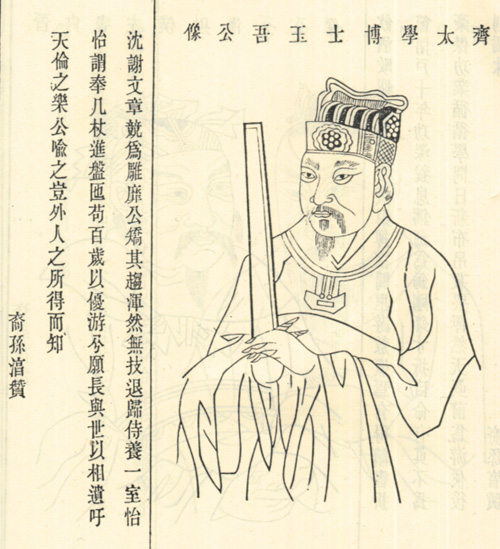 齊太學博士玉吾公像
沈謝文章競爲雕靡公矯其趨渾然無技退歸侍養一室怡
怡謂奉几杖進盤匜苟百歲以優游兮願長與世以相遺吁
天倫之樂公喻之豈外人之所得而知
裔孫贊